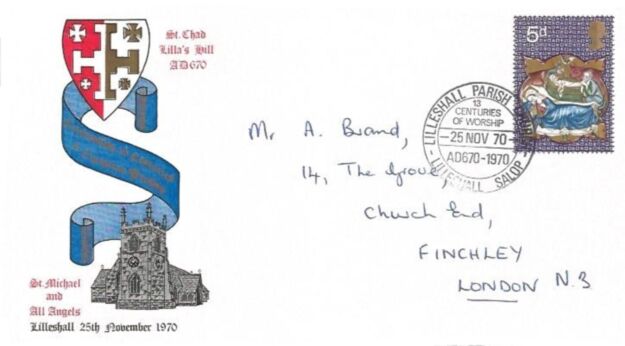 St. Chad
Lilla's Hill
AD670
5d
LILLESHALL PARISH
13
CENTURIES
OF WORSHIP
25 NOV 70
AD670-1970
LILLESHALL SALOP
Mr A. Brand,
14, The Grove,
Church End,
FINCHLEY
LONDON N.3
St. Michael
and
All Angels
Lilleshall 25th November 1970